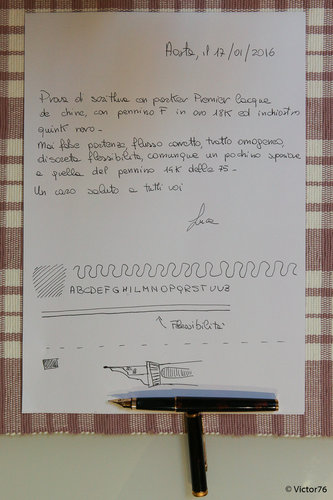 Aosta, il 17/01/2016
Prova di scrittura con parker Premier lacque
de chine, con pennino F in oro 18K ed inchiostro
quink nero.
Mai false partenze, flusso corretto, tratto omogeneo,
discreta flessibilità, comunque un pochino
a quella del pennino 14K della 75.
Un caro saluto a tutti voi
Luca
ABCDEFGHILMNOPQRSTUVZ
Flessibilità
© Victor76